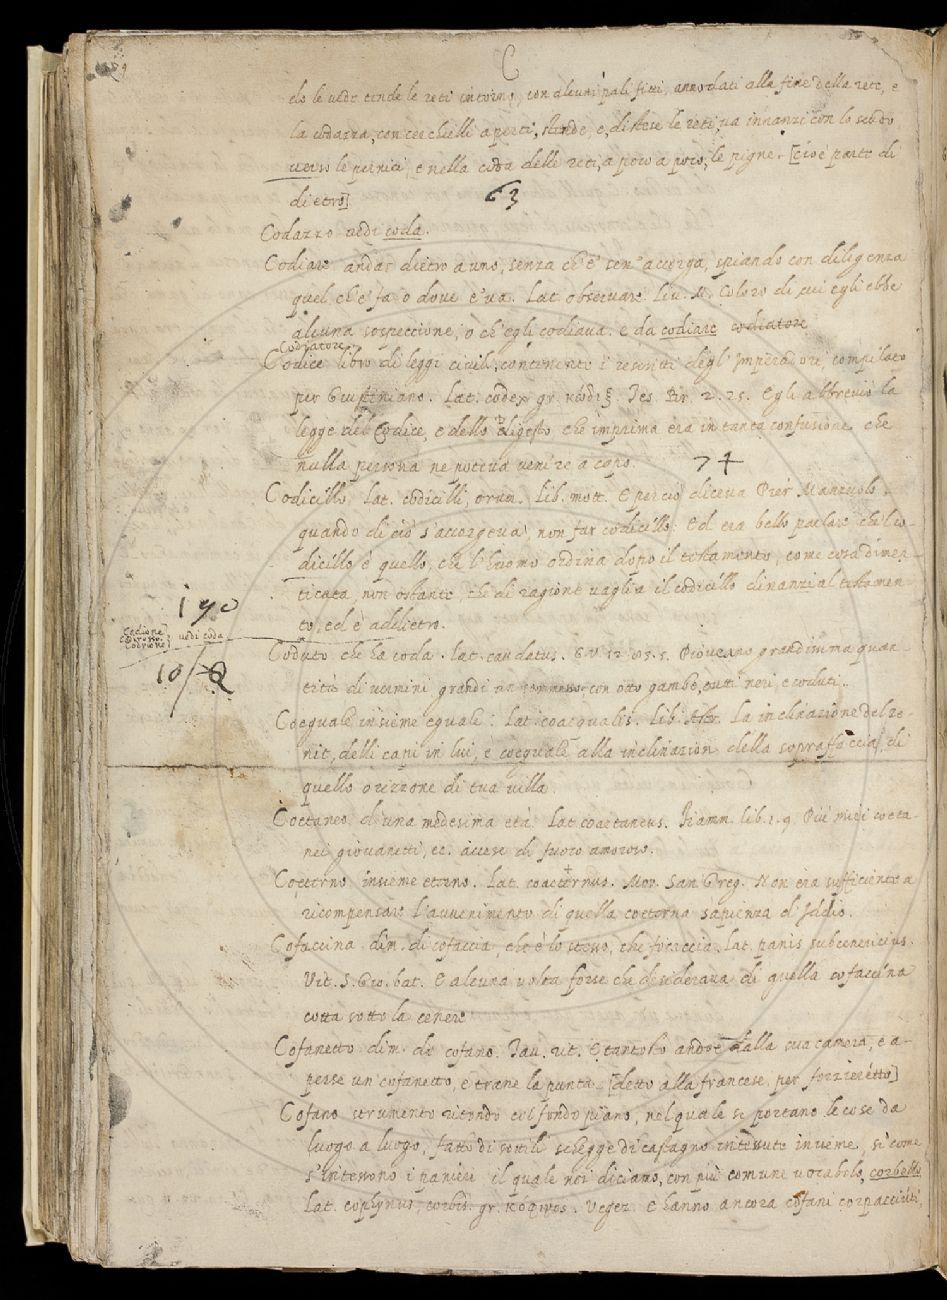 C
do le vede tende le reti intorno, con alcuni pali fitti, annodati alla fine della rete, e
la codazza, con cerchielli aperti, stende, e, distese le reti, va innanzi con lo scudo
verso le pernici, e nella coda delle reti, a poco a poco, le pigne. [cioè parte di
dietro]
63
Codazzo vedi coda.
Codiare andar dietro a uno, senza ch'e' sen' accorga, spiando con diligenza
quel ch'e' fa o dove e' va. Lat. observare. Liv. M. Coloro di cui egli ebbe
alcuna sospeccione, o ch'egli codiava. e da codiare codiatore
Codiatore
Codice libro di leggi civili, contenente i rescritti degl' Imperadori, compilato
per Giustiniano. Lat. codex gr. κώδιξ. Tes. Br. 2. 25. Egli abbreviò la
legge del Codice, e dello Digesto che imprima era in tanta confusione, che
nulla persona ne poteva venire a capo.
74
Codicillo. Lat. codicilli, orum. Lib. mott. E perciò diceva Pier Manzuolo.
quando di ciò s'accorgeva, non far codicillo: Ed era bello parlare che'l co-
dicillo è quello, che l'huomo ordina dopo il testamento, come cosa dimen-
ticata, non ostante, che di ragione vaglia il codicillo dinanzi al testamen-
to, ed è addietro.
190
Codione
Codrione
vedi coda
10/
Coduto che ha coda. Lat. caudatus. G.V. 12. 83. 5. Pioveano grandissima quan-
tità di vermini grandi un sommesso con otto gambe, tutti neri, e coduti.
Coeguale insieme eguale. Lat. coaequalis. Lib. Astr. La inclinazione del ze-
nit, delli capi in lui, è coeguale alla inclinazion della sopraffaccia, di
quello orizzone di tua villa.
Coetaneo d'una medesima età. Lat. coaetaneus. Fiamm. lib. 1. 9. Più miei coeta-
nei giovanetti, ec. accese di fuoco amoroso.
Coeterno insieme eterno. Lat. coaeternus. Mor. San Greg. Non era sufficiente a
ricompensare l'avvenimento di quella coeterna sapienza d'Iddio.
Cofaccina dim. di cofaccia, che è lo stesso, che focaccia. Lat. panis subcenericius.
Vit. S. Gio. bat. E alcuna volta forse che desiderava di quella cofaccina
cotta sotto la cenere
Cofanetto dim. di cofano. Tav. rit. E tantosto andoe dalla sua camera, e a-
perse un cofanetto, e trane la punta. [detto alla francese per forzieretto]
Cofano strumento ritondo col fondo piano, nel quale si portano le cose da
luogo a luogo, fatto di sottili schegge di castagno intessute insieme, sì come
s'intessono i panieri il quale noi diciamo, con più comune vocabolo, corbello.
Lat. cophynus, corbis. gr. κόφινος. Vegez. E hanno ancora cofani corpacciuti,